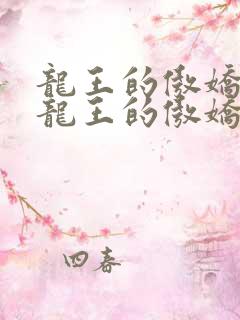 龍王的傲嬌
龍王的傲嬌
四春